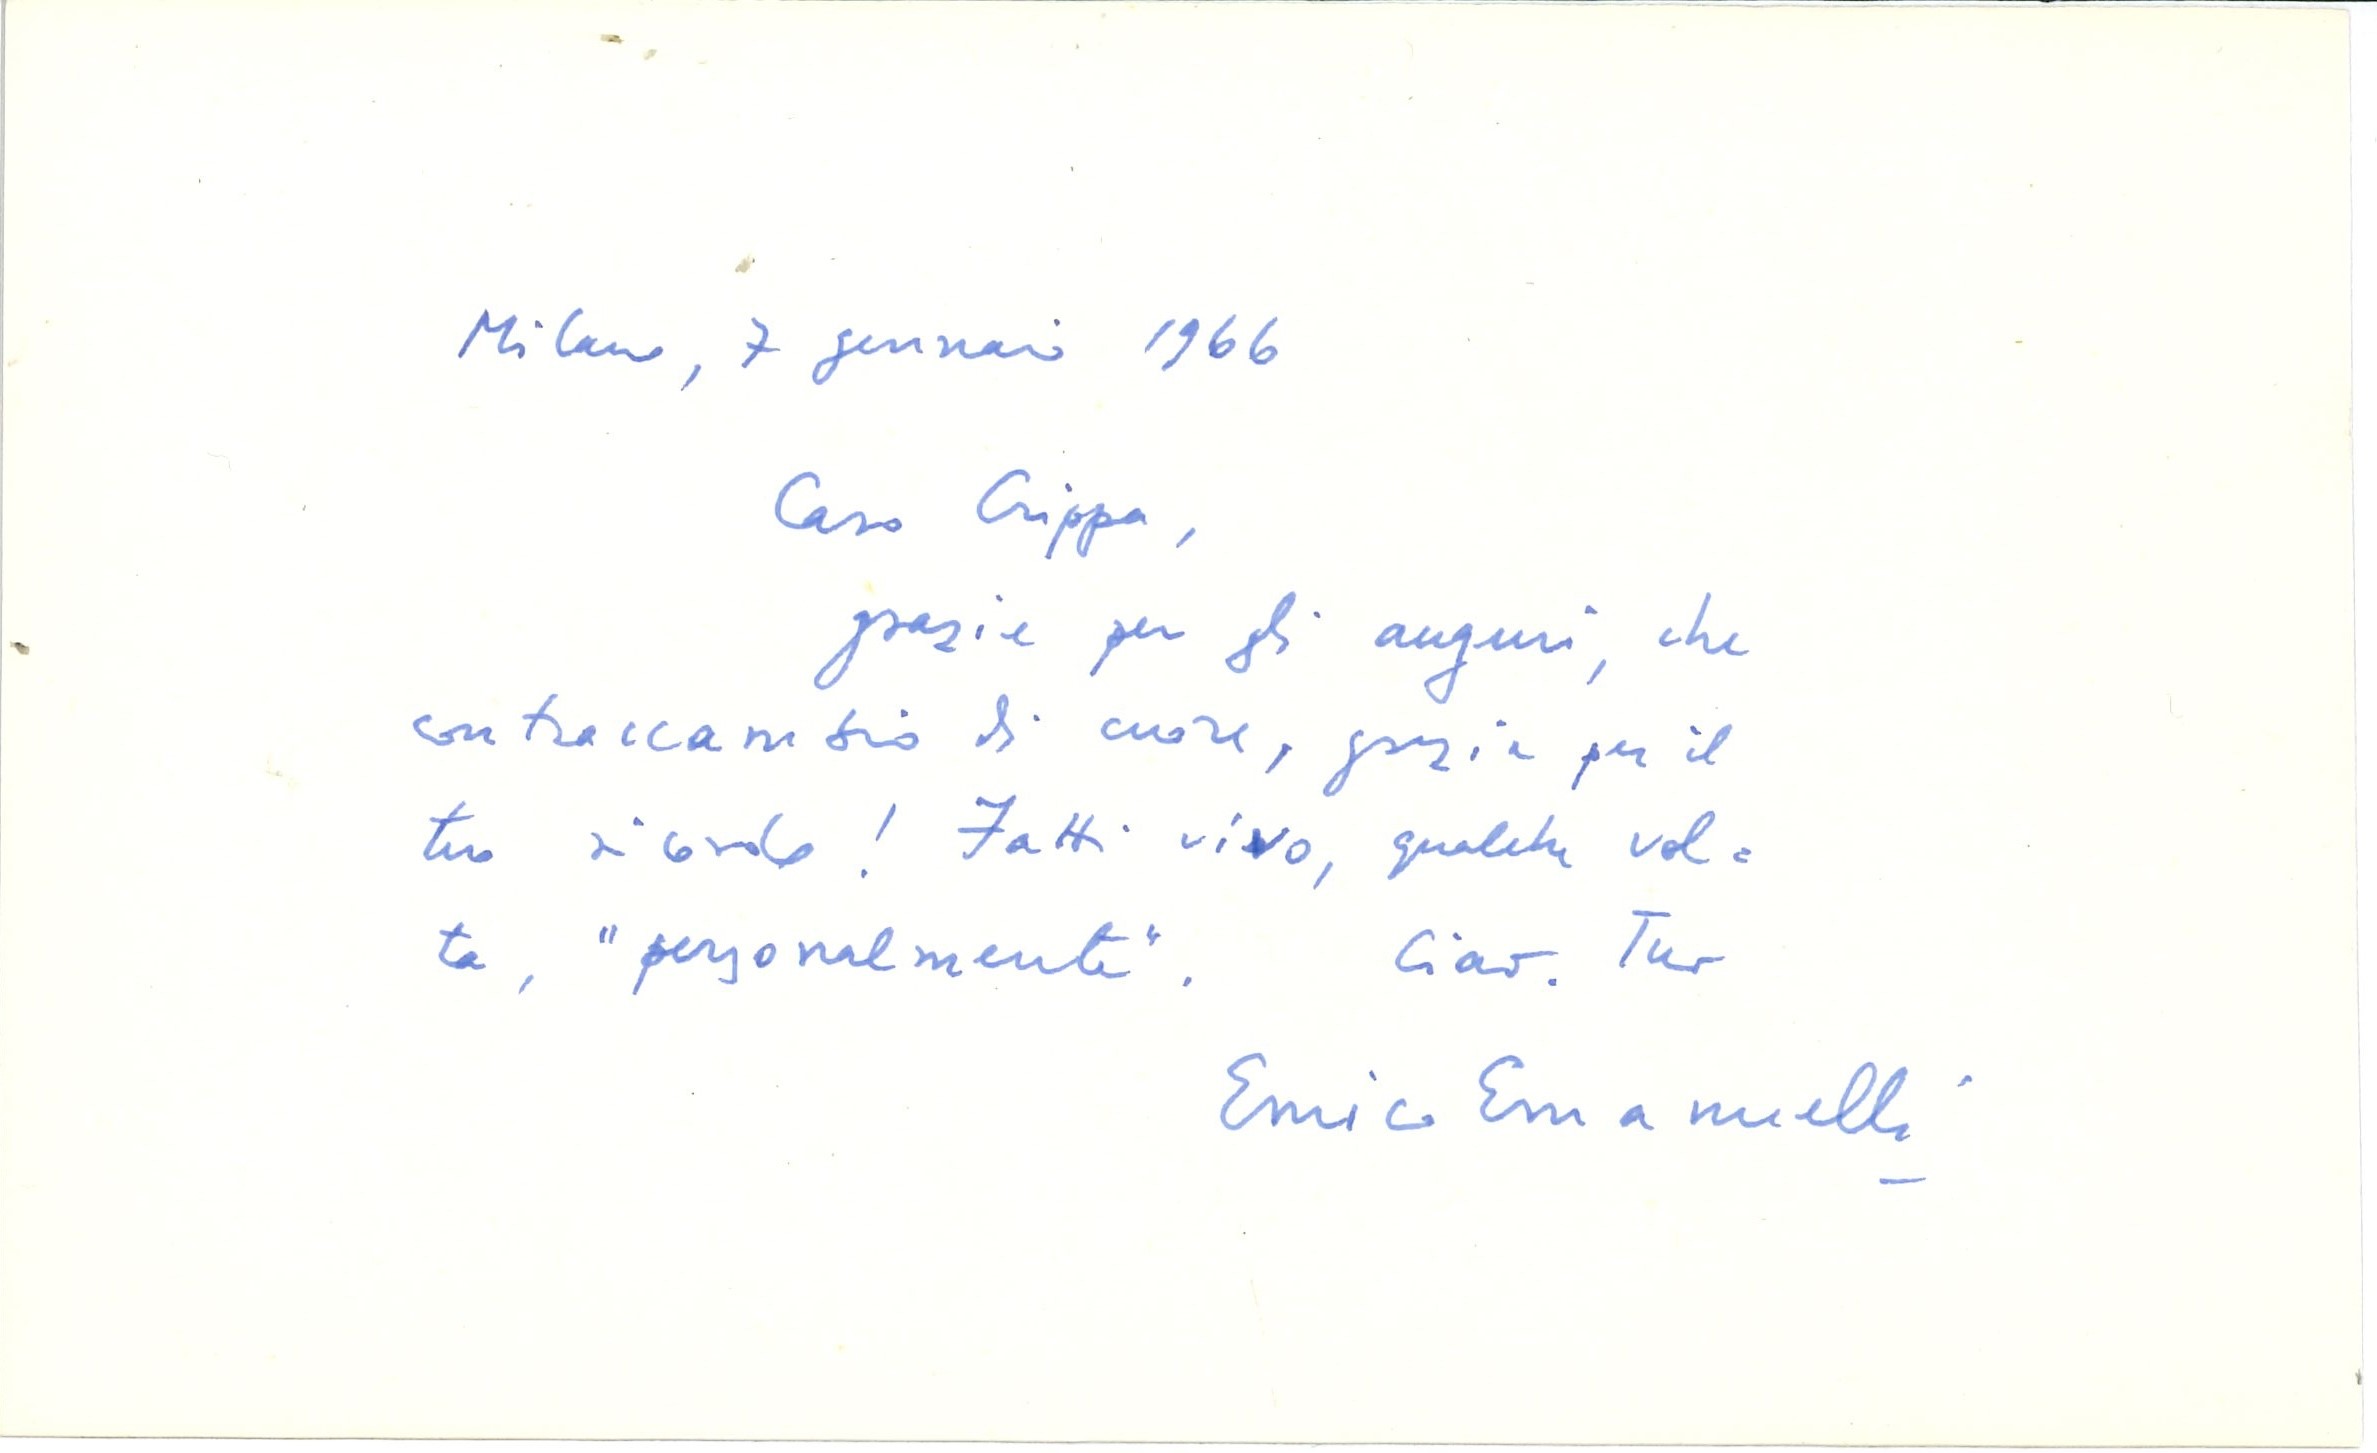 Milano, 7 gennaio 1966
Caro Crippa,
grazie per gli auguri, che
contraccambio di cuore, grazie per il
tuo ricordo! Fatti vivo, qualche vol=
ta, "personalmente". Ciao. Tuo
Enrico Emanuelli